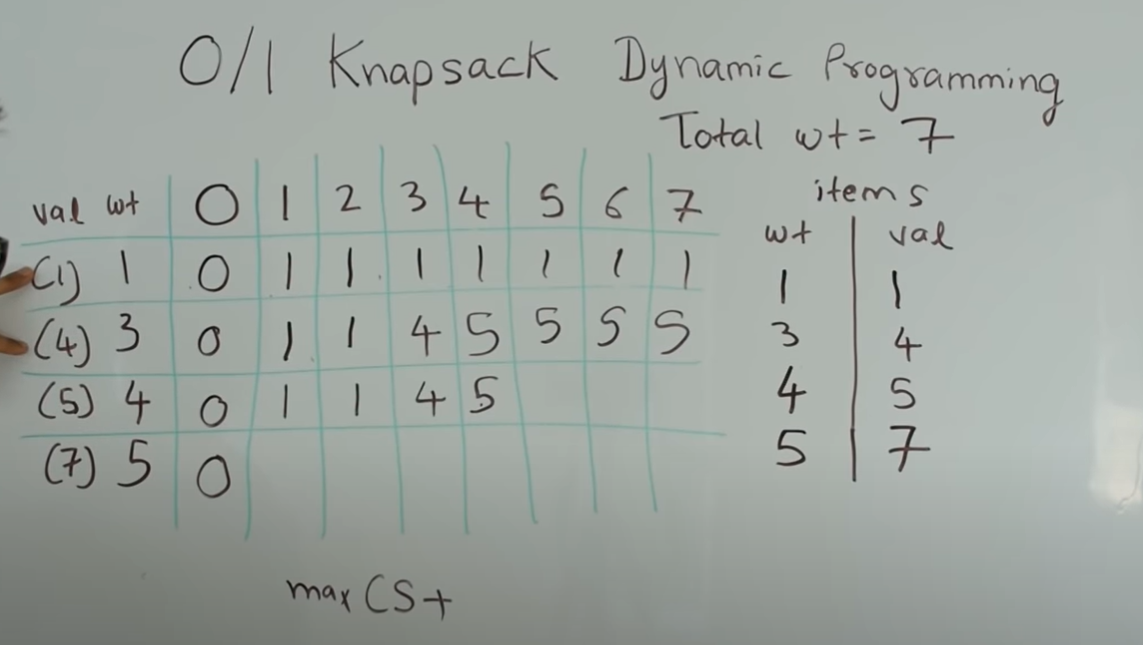 0/1 Knapsack Dynamic Programming
Total wt = 7
val wt 0 1 2 3 4 5 6 7
(1) 1 0 1 1 1 1 1 1 1
(4) 3 0 1 1 4 5 5 5 5
(5) 4 0 1 1 4 5
(7) 5 0
items
wt val
1 1
3 4
4 5
5 7
max (5+